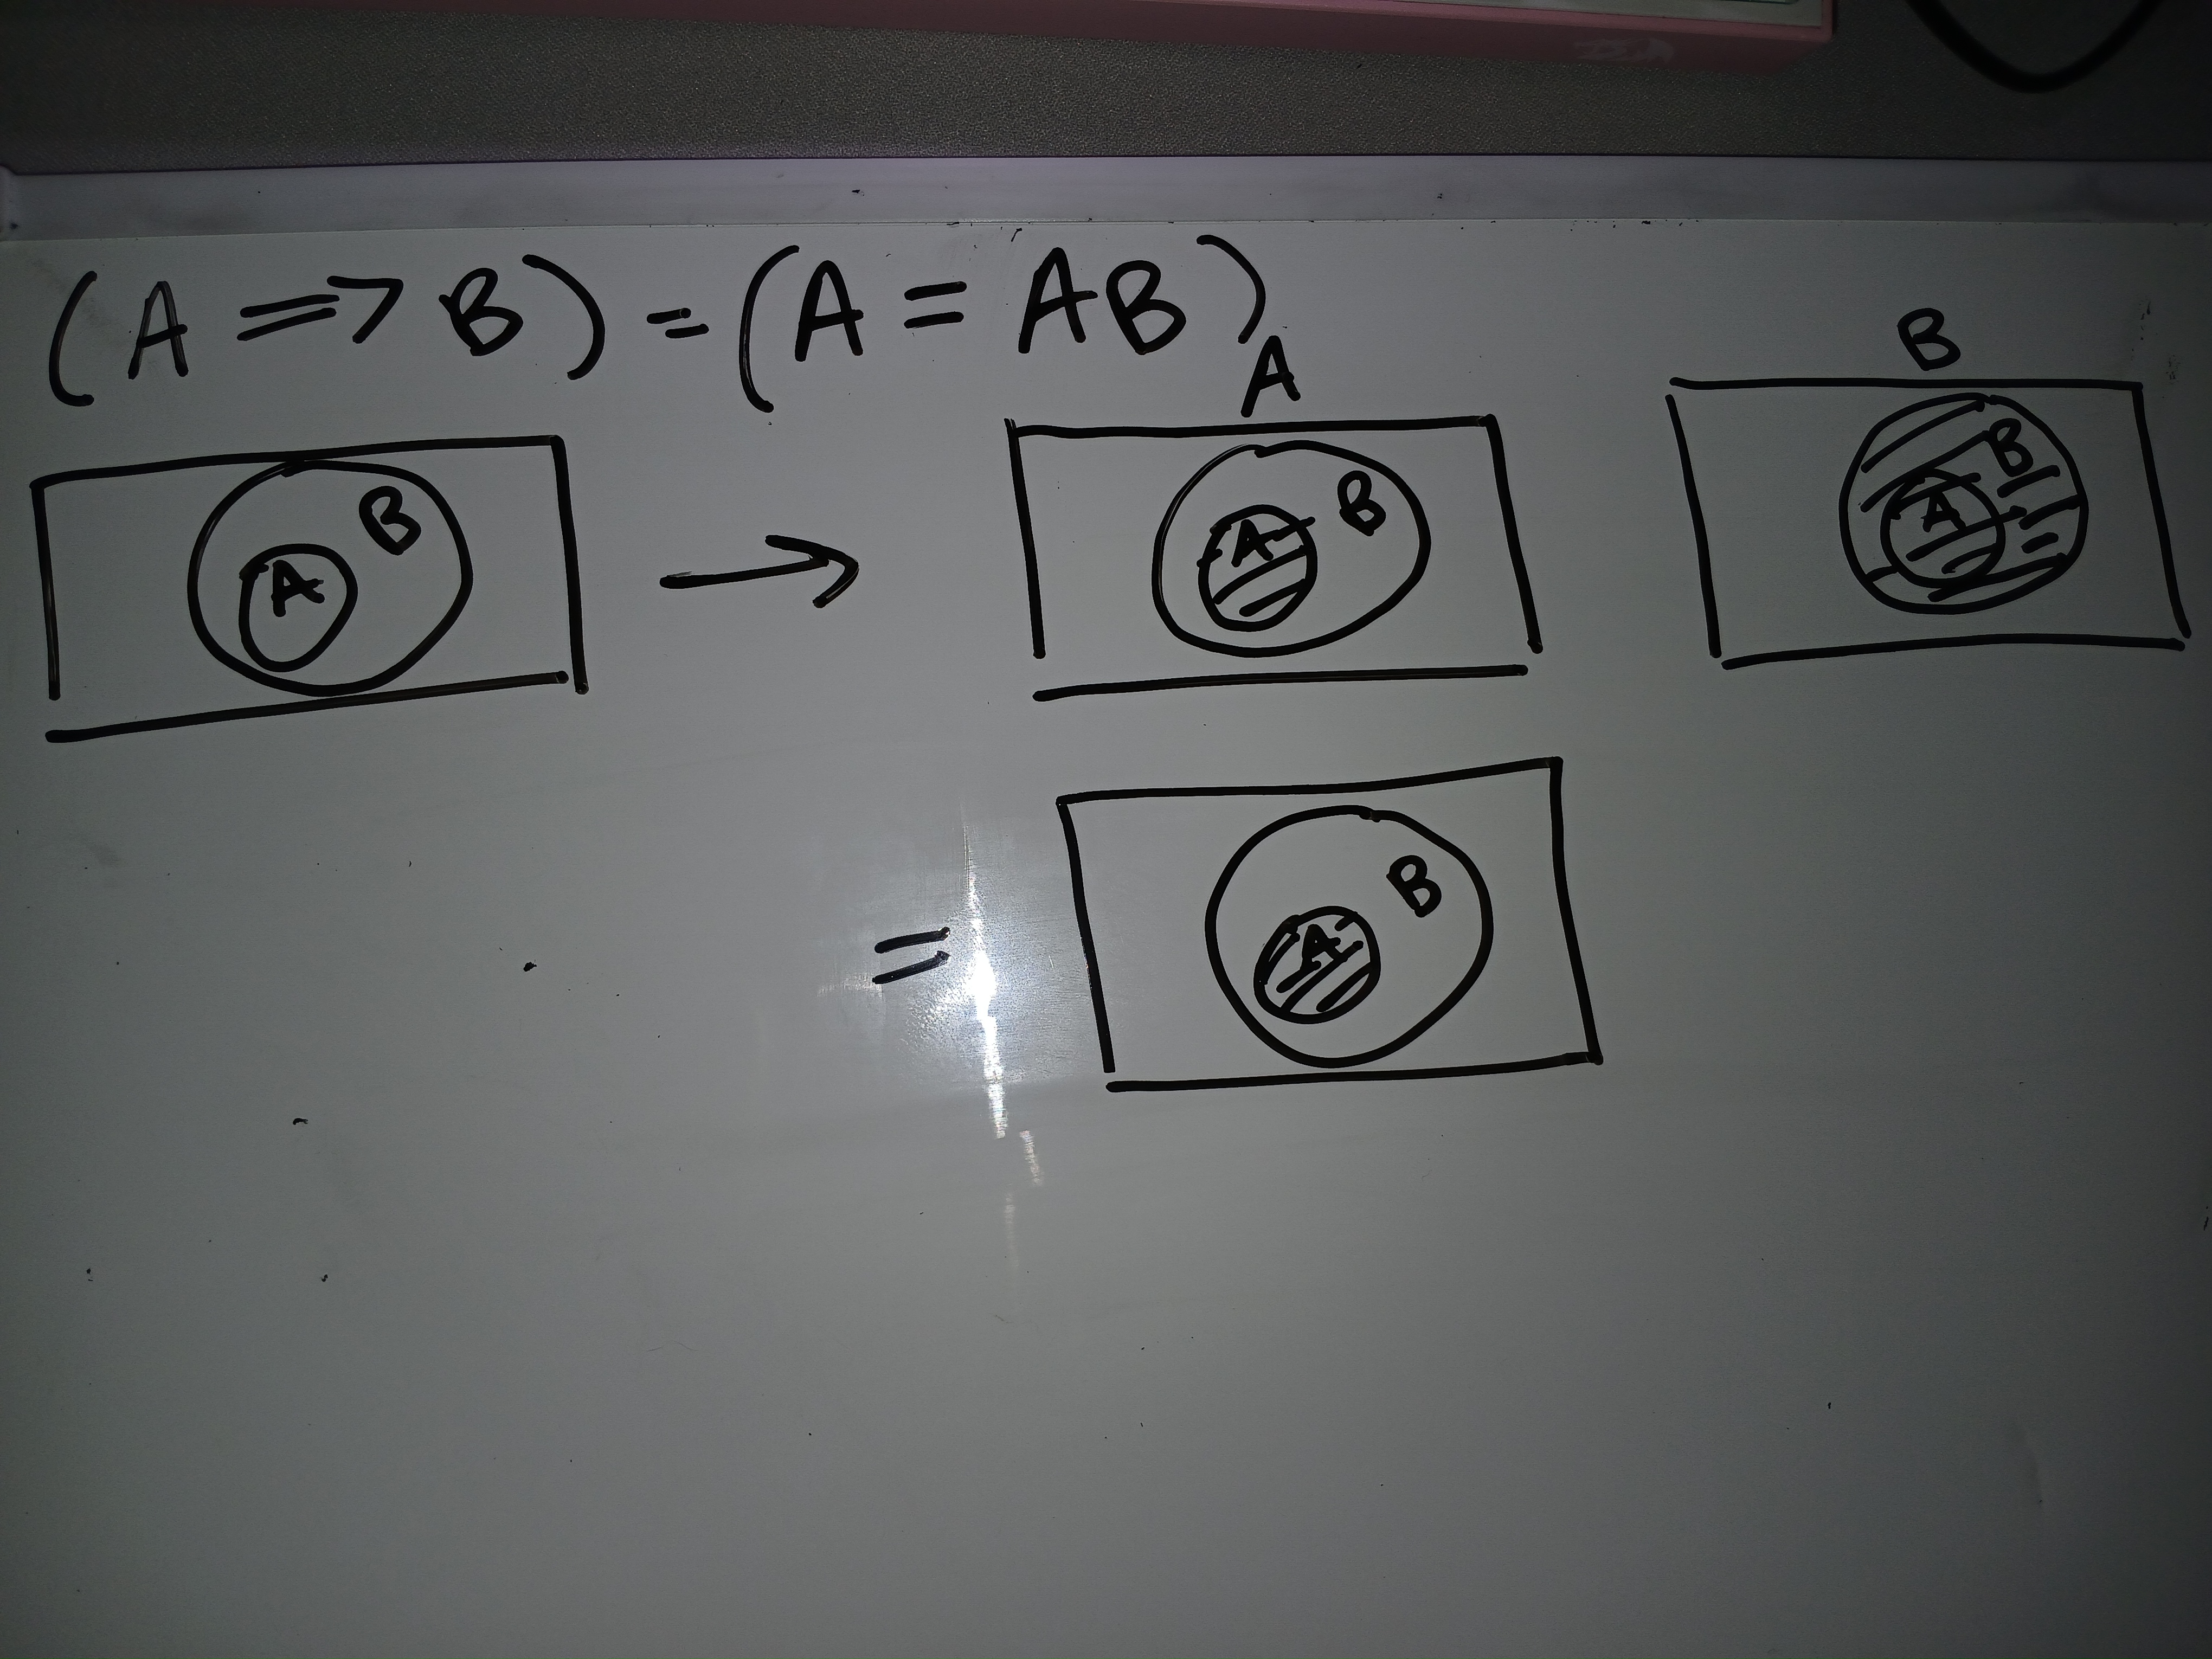 (A => B) = (A = AB)
A B
A B → A B A B
= A B